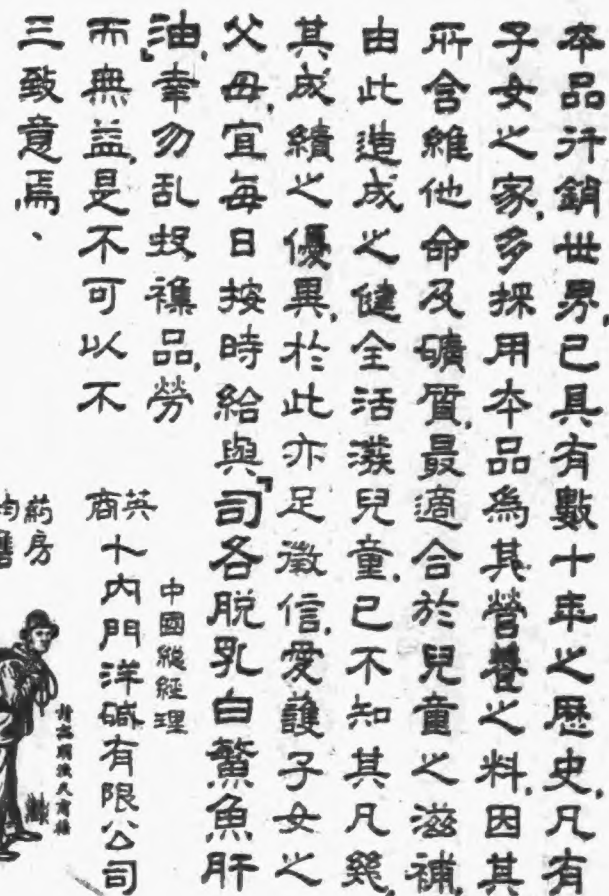 本品行銷世界,已具有數十年之歷史,凡有
子女之家,多採用本品為其營養之料,因其
所含維他命及礦質,最適合於兒童之滋補,
由此造成之健全活潑兒童,已不知其凡幾,
其成績之優異,於此亦足徵信,愛護子女之
父母,宜每日按時給與『司各脫乳白鰵魚肝
油』,幸勿乱投襍品,勞
而無益,是不可以不
三致意焉、
中國總經理
英商卜内門洋碱有限公司
葯房均售